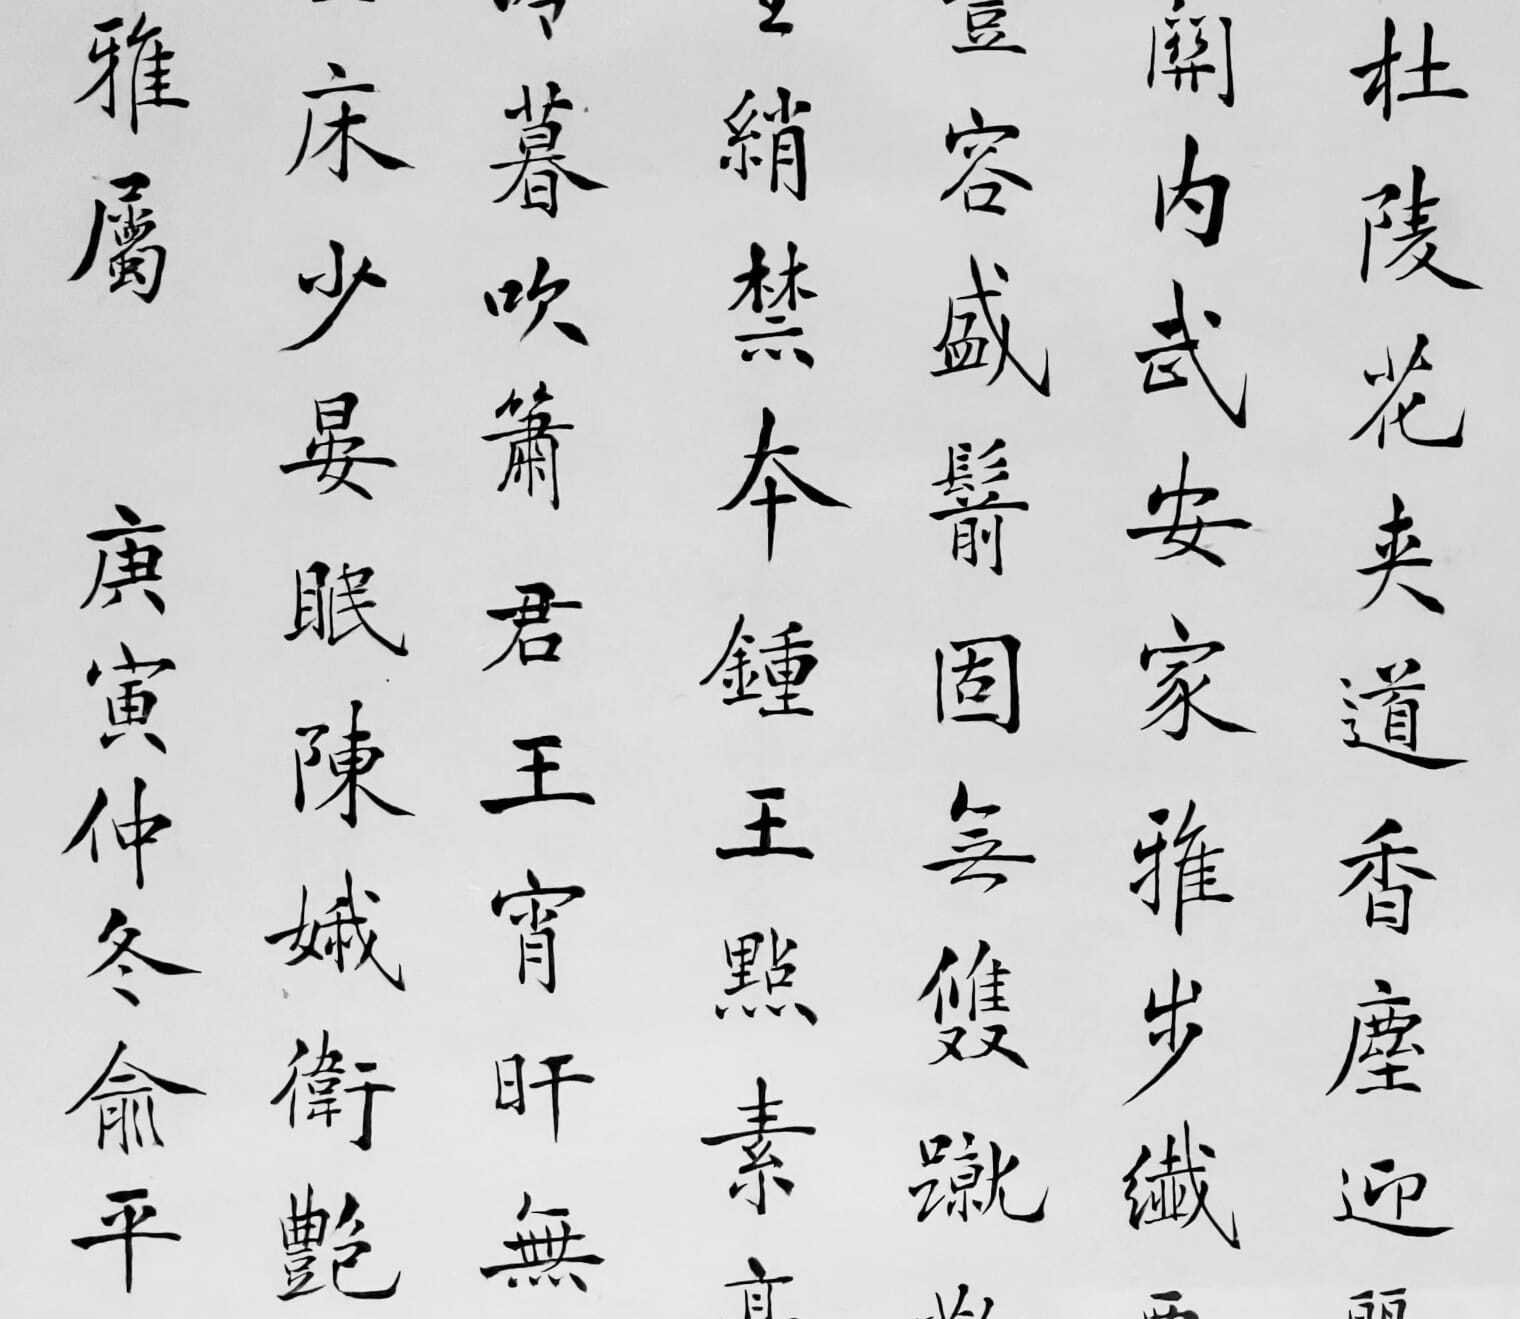 杜陵花夾道香塵迎
關内武安家雅步纖
容盛鬋固無雙蹴
綃禁本鍾王點素
暮吹簫君王宵旰無
床少晏眠陳娥衛艷
雅屬 庚寅仲冬俞平